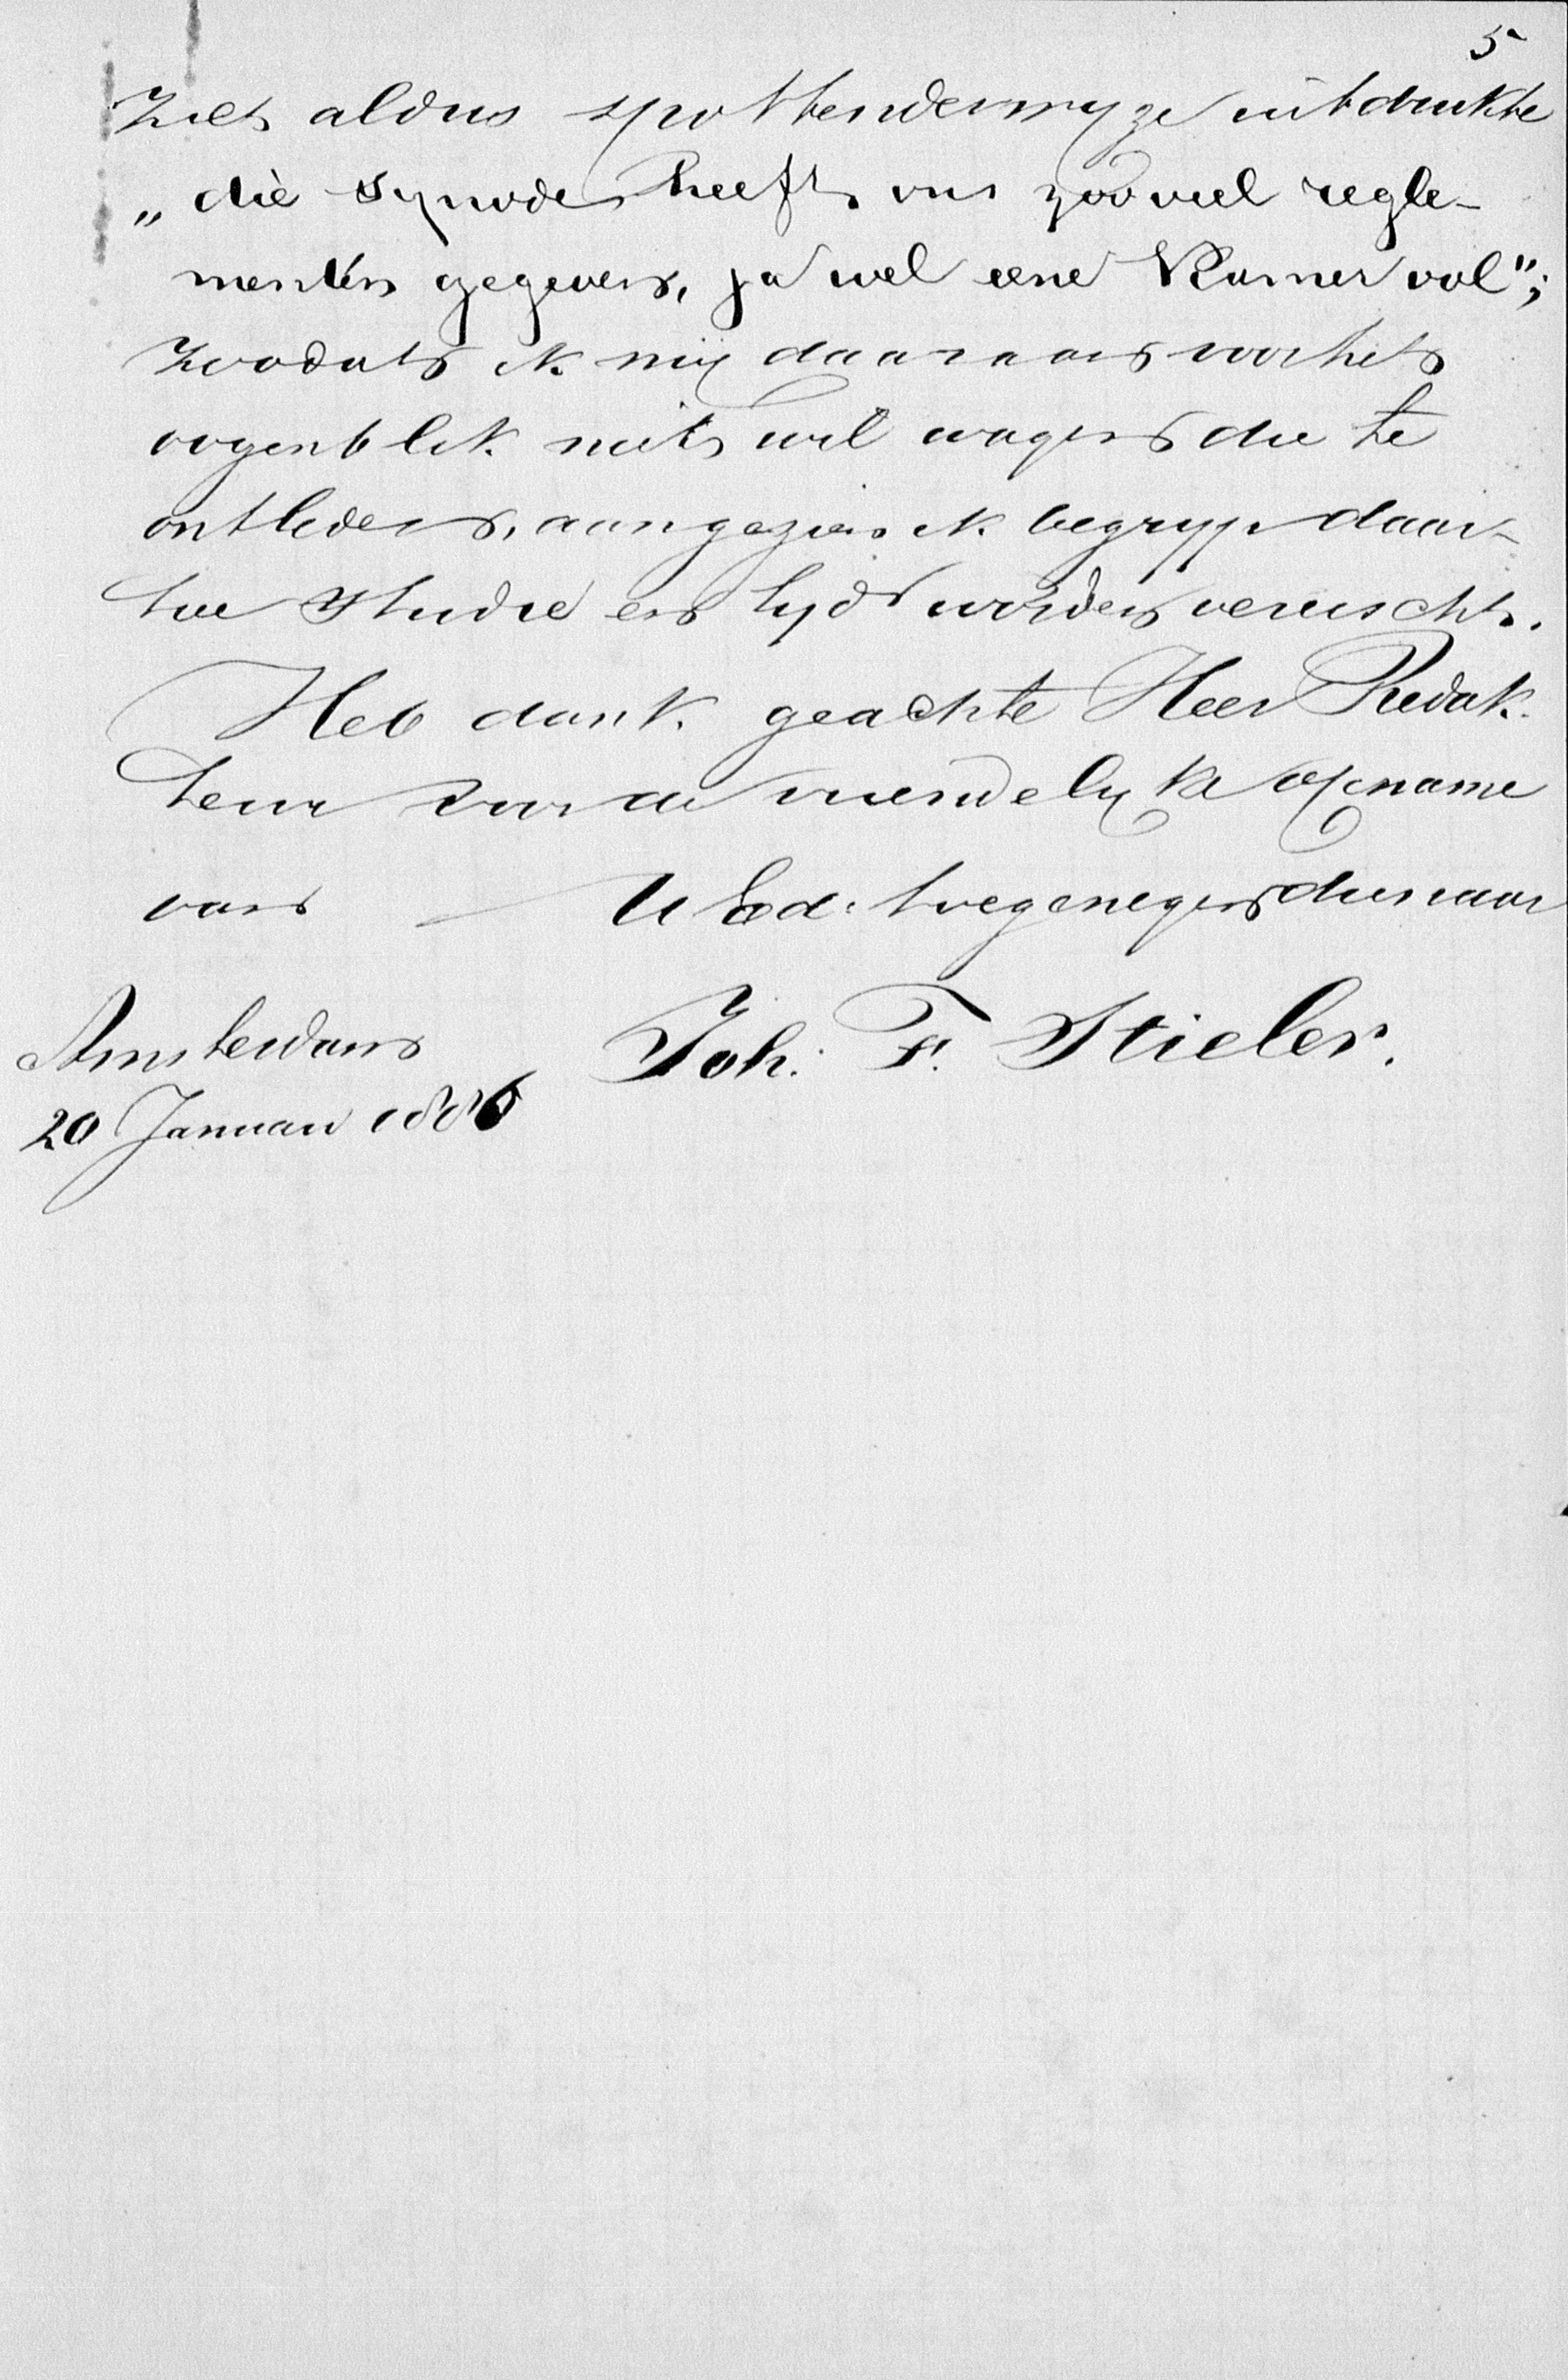 5
Zich aldus spottenderwyze uitdrukte
„die Synode heeft ons zoo veel regle-
menten gegeven, ja wel eene Kamer vol";
zoodat ik mij daaraan voor het
oogenblik niet wil wagen die te
ontleden, aangezien ik begryp daar-
toe studie en tyd worden vereischt.
Heb dank geachte Heer Redak-
teur voor de vriendelyke opname
van U Ed. toegenegen dienaar
Amsterdam Joh. F. Stieler.
20 Januari 1886